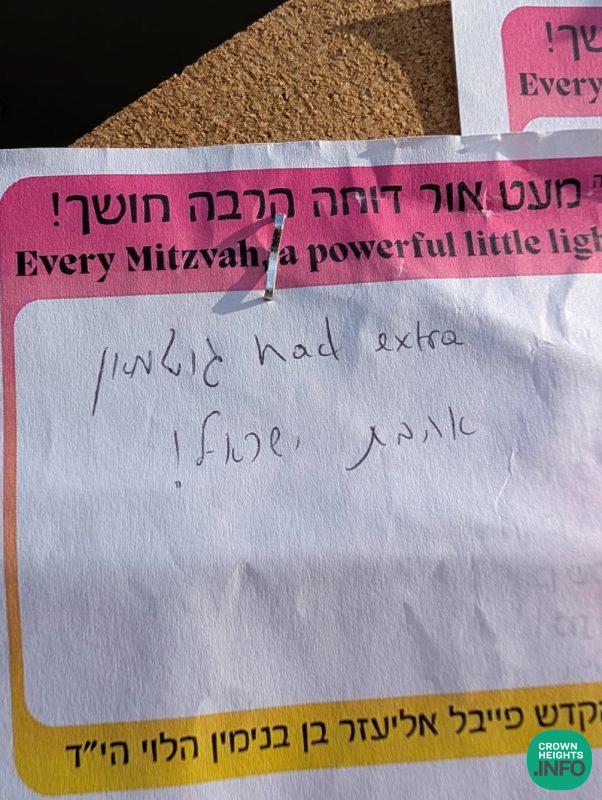 שך!
Every
מעט אור דוחה הרבה חושך!
Every Mitzvah, a powerful little ligh
had extra
אהבת ישראל!
הקדש פייבל אליעזר בן בנימין הלוי הי״ד
CROWN
HEIGHTS
.INFO